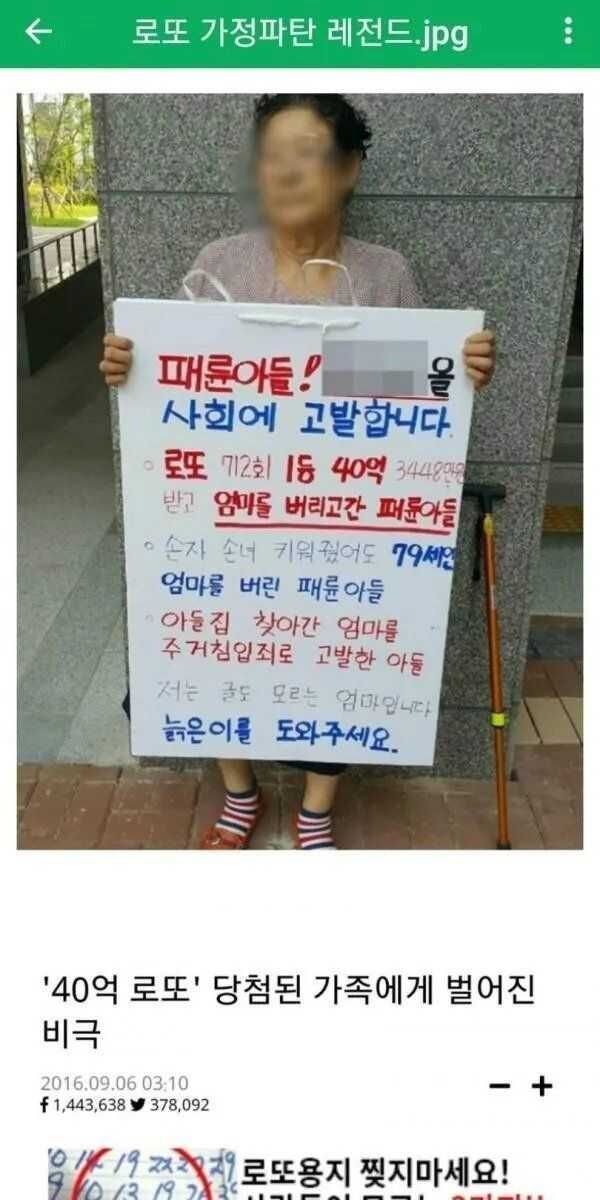 로또 가정파탄 레전드.jpg
패륜아들! 을
사회에 고발합니다.
로또 712회 1등 40억 3448만원
받고 엄마를 버리고간 패륜아들
손자 손녀 키워줬어도 79세인
엄마를 버린 패륜아들
아들집 찾아간 엄마를
주거침입죄로 고발한 아들
저는 글도 모르는 엄마입니다
늙은이를 도와주세요.
'40억 로또' 당첨된 가족에게 벌어진
비극
2016.09.06 03:10
1,443,638 378,092
로또용지 찢지마세요!